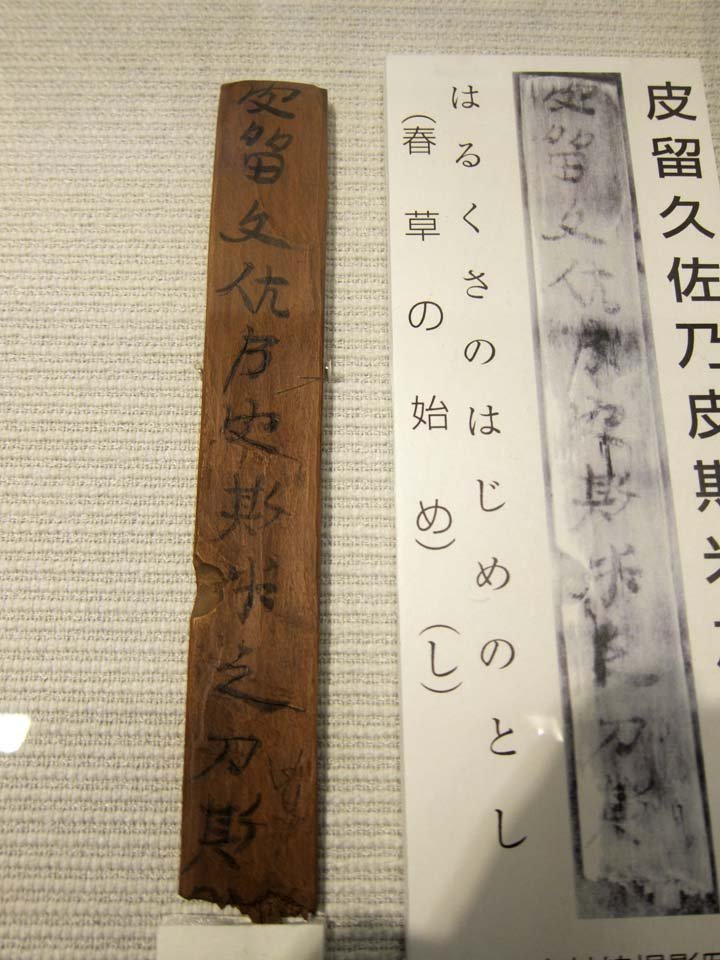 皮留久佐乃皮斯米
皮留久佐乃皮斯米之刀斯
はるくさのはじめのとし
(春草の始め)(し)
皮留久佐乃皮斯米之刀斯